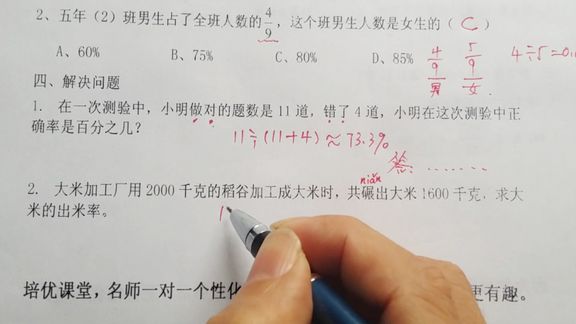 2、五年（2）班男生占了全班人数的4/9，这个班男生人数是女生的（ C ）
A、60% B、75% C、80% D、85%
4/9 男 5/9 女 4÷5=0.
四、解决问题
1. 在一次测验中，小明做对的题数是 11 道，错了 4 道，小明在这次测验中正
确率是百分之几？
11÷(11+4)≈73.3%
答：……
niǎn
2. 大米加工厂用 2000 千克的稻谷加工成大米时，共碾出大米 1600 千克，求大
米的出米率。
培优课堂，名师一对一个性化
更有趣。